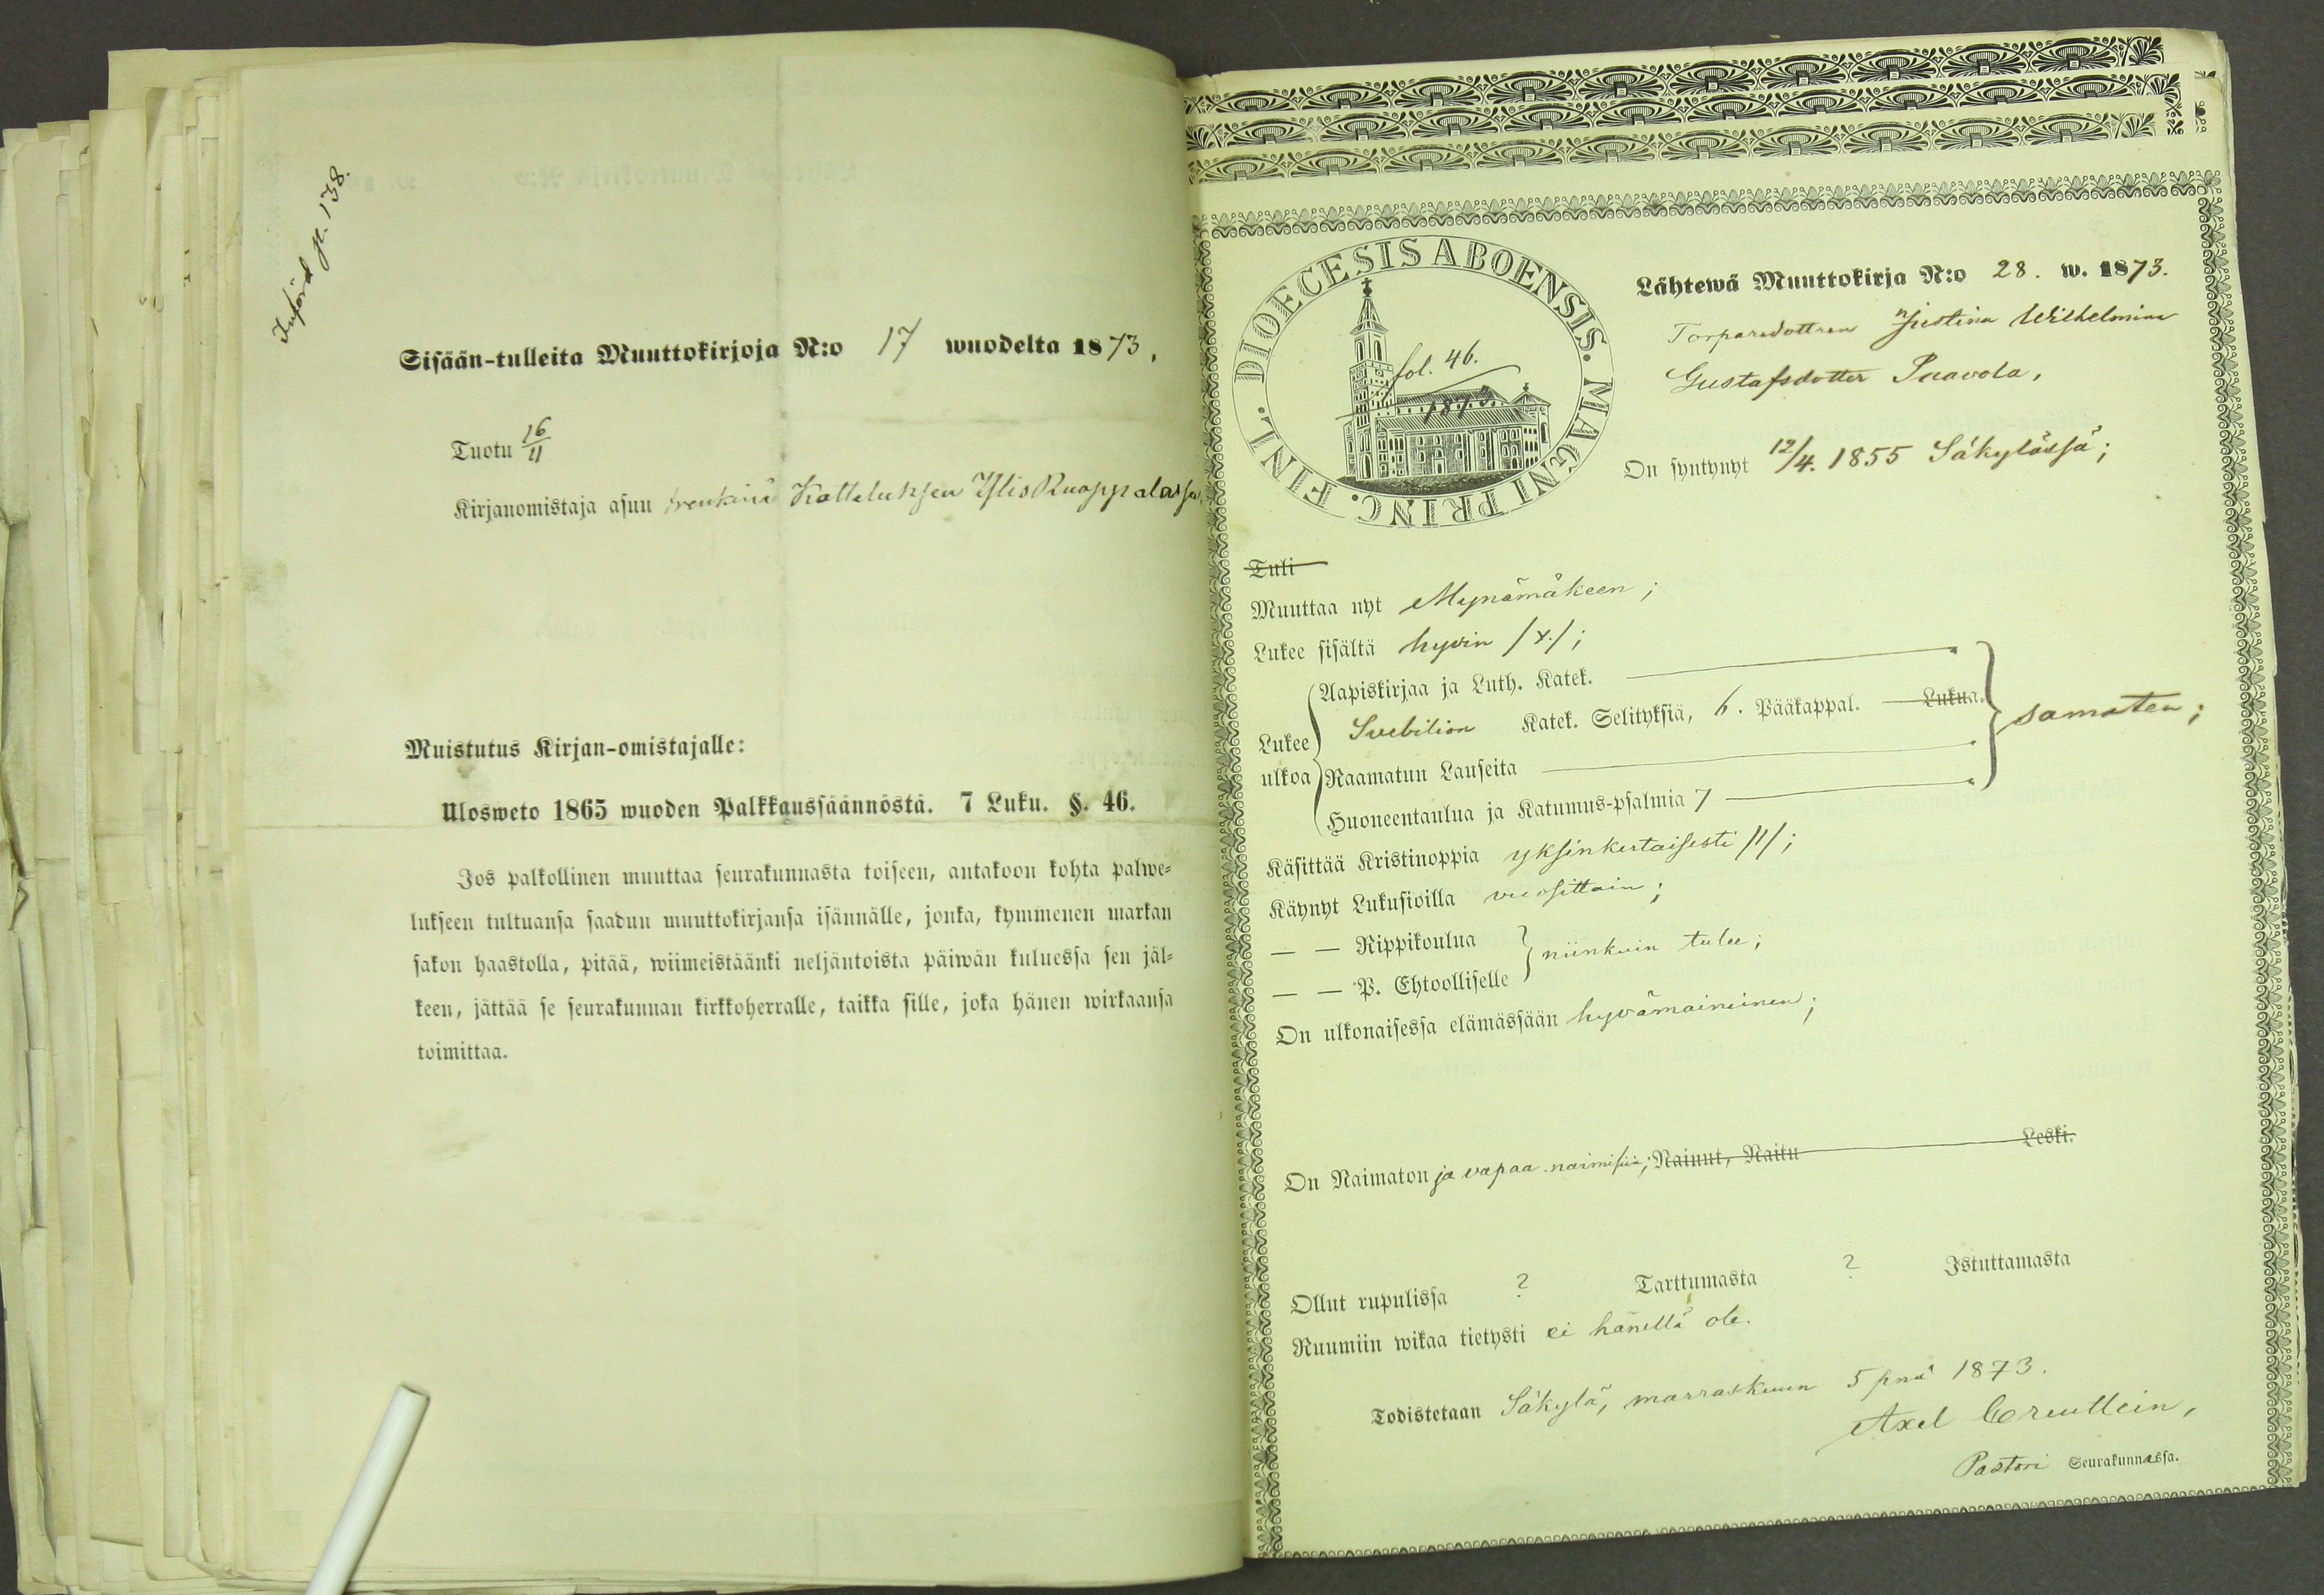 Införd p. 138.
Sisään-tulleita Muuttokirjoja N:o 17 wuodelta 1873,
Tuotu 16/11
Kirjanomistaja asuu trenkinä Katteluksen Ylis Ruoppalassa
Muistutus Kirjan-omistajalle:
Ulosweto 1865 wuoden Palkkaussäännöstä. 7 Luku. §. 46.
Jos palkollinen muuttaa seurakunnasta toiseen, antakoon kohta palwe-
lukseen tultuansa saadun muuttokirjansa isännälle, jonka, kymmenen markan
sakon haastolla, pitää, wiimeistäänki neljäntoista päiwän kuluessa sen jäl-
keen, jättää se seurakunnan kirkkoherralle, taikka sille, joka hänen wirkaansa
toimittaa.
FINL. DIOECESIS ABOENSIS. MAGNI PRINC.
fol. 46.
1873
Lähtewä Muuttokirja N:o 28. w. 1873.
Torparedottren Justina Wilhelmina
Gustafsdotter Paavola,
On syntynyt 12/4. 1855 Säkylässä;
Tuli
Muuttaa nyt Mynämäkeen;
Lukee sisältä hyvin /x./;
Aapiskirjaa ja Luth. Katek.
Lukee Svebilion Katek. Selityksiä, 6. Pääkappal. Lukua. samaten;
ulkoa Raamatun Lauseita
Huoneentaulua ja Katumus-psalmia 7
Käsittää Kristinoppia yksinkertaisesti /1/;
Käynyt Lukusioilla vuosittain;
— — Rippikoulua
niinkuin tulee;
— — P. Ehtoolliselle
On ulkonaisessa elämässään hyvämaineinen;
On Naimaton ja vapaa naimisiin; Nainut, Naitu Leski.
Ollut rupulissa ? Tarttumasta ? Istuttamasta
Ruumiin wikaa tietysti ei hänellä ole.
Todistetaan Säkylä, marraskuun 5 pnä 1873.
Axel Coreutlein,
Pastori Seurakunnassa.